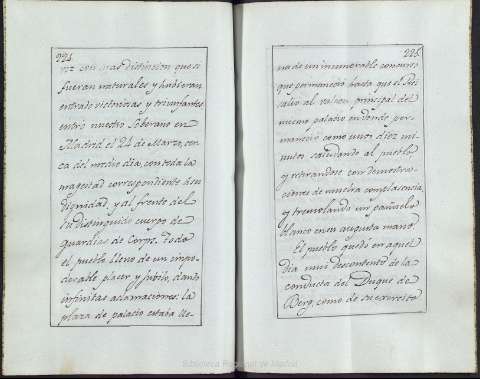 224
con mas distincion que si
fueran naturales y hubieran
entrado victoriosas y triunfantes
entró nuestro Soberano en
Madrid el 24 de Marzo, cer-
ca del medio dia, con toda la
magestad correspondiente á su
dignidad, y al frente del
distinguido cuerpo de
guardias de Corps. Todo
el pueblo lleno de un impo-
derable placer y jubilo, dando
infinitas aclamaciones: la
plaza de palacio estaba lle-
225
na de un innumerable concurso
que permaneció hasta que el Rey
salió al balcon principal del
nuevo palacio en donde per-
maneció como unos diez mi-
nutos saludando al pueblo,
y retirandose con demostra-
ciones de mucha complacencia,
y tremolando un pañuelo
blanco en su augusta mano.
El pueblo quedó en aquel
dia muy descontento de la
conducta del Duque de
Berg, como de su exercito
Biblioteca Regional de Madrid